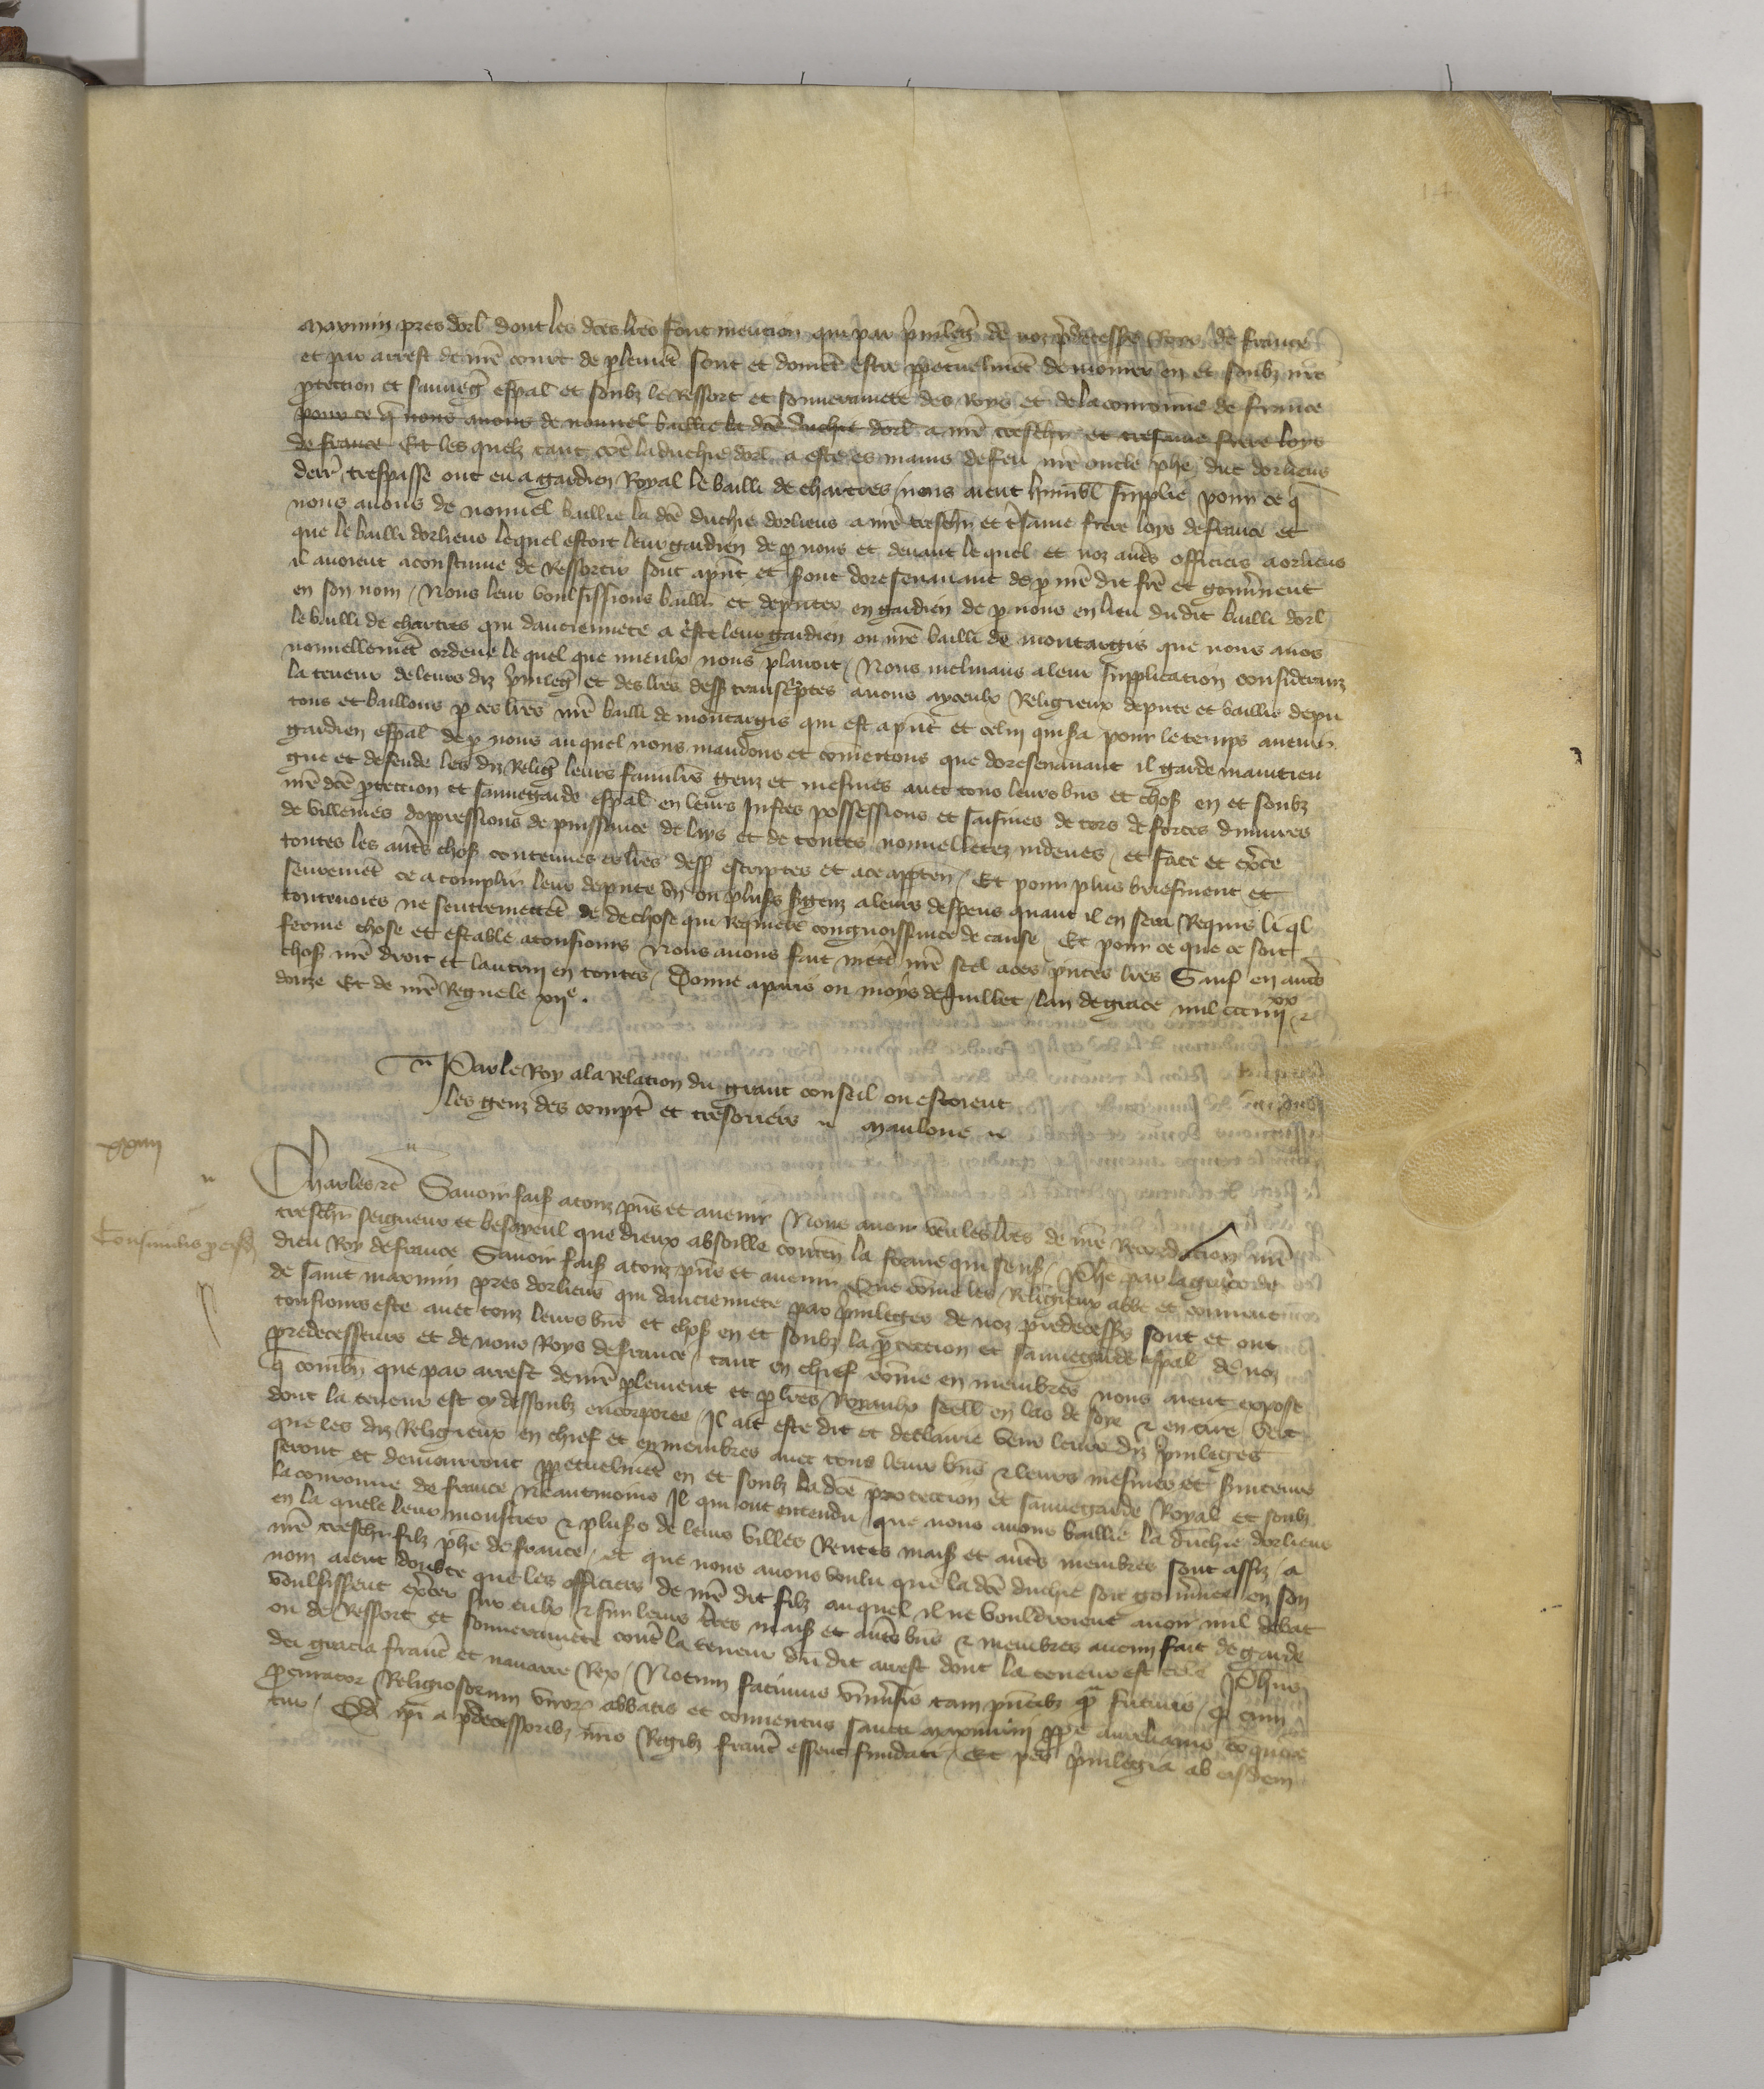 maximin pres dorl dont les dces lres font mencion qui par privileg de noz predecessrs Roys de france
et par arrest de nre court de plement sont et doivent estre ppetuelment demourer en et soubz nre
ptection et sauveg espal et soubz le Ressort et souverainete des Roys et de la couronne de france
pour ce q nous avons de nouvel baillie la dce duchie dorl a nre treschr et tresame frere loys
de france Et les quelz tant coe la duchie dorl a este es mains de feu nre oncle phe duc dorliens
derr trespasse ont eu a gardien Royal le bailli de chartres / nous aient humbl supplie pour ce q
nous avons de nouvel baillie la dce duchie dorliens a nre treschr et tsame frere loys de france et
que le bailli dorliens lequel estoit leur gardien de p nous et devant le quel et noz aues officiers a orliens
il avoient acoustume de Ressortir sont apnt et sont doresenavant de p nre dit fre et gouvnent
en son nom / Nous leur voulsissions baillr et deputer en gardien de p nous en lieu du dit bailli dorl
le bailli de chartres qui danciennete a este leur gardien ou nre bailli de montargis que nous avos
nouvellemet ordene le quel que mieulx nous plairoit / Nous inclinans a leur supplicacion considerans
la teneur de leurs diz privileg et des lres dess transcptes avons a yceulx Religieux depute et baillie depu
tons et baillons p ces lres nre bailli de montargis qui est apnt et celui qui sa pour le temps avenir
gardien espal de p nous auquel nous mandons et cometons que doresenavant il garde maintien
gne et defende les diz Relig leurs familrs genz et mesnies avec tous leurs bns et chos en et soubz
nre dce ptection et sauvegarde espal en leurs justes possessions et saisines de tors de forces dinjures
de villenies doppressions de puissance de lays et de toutes nouvelletez indeues / et face et exce
toutes les aues chos contenues es lres dess escriptes et a ce apptien / Et pour plus briefment et
seuremet ce a complir leur depute un ou plus sgenz a leurs despens quant il en sera Requis li ql
toutevoies ne sentremettet de chose qui Requiere congnoissance de cause / Et pour ce que ce soit
ferme chose et estable a tousjours Nous avons fait mett nre seel a ces pntes lres Sauf en aues
chos nre droit et lautrui en toutes / Donne a paris ou moys de Juillet / lan de grace mil ccc iiii xx et
douze Et de nre Regne le xiie.
Par le Roy a la Relacion du grant conseil ou estoient
les genz des compt et tresoriers maulone
xxiiii
Charles etc Savoir fais a touz pns et avenir Nous avoir veu les lres de nre Recordacion nre
Consimilis
treschr seigneur et besayeul que dieux absoille conten la forme qui sens / Phe par la grace de
dieu Roy de france Savoir fais a touz pns et avenir Que come les Religieux abbe et convent
de saint maximin pres dorliens qui danciennete par privileges de noz predecessrs sont et ont
tousjours este avec touz leurs bns et chos en et soubz la ptection et sauvegarde espal de noz
predecesseurs et de nous Roys de france / tant en chief come en membres nous aient expose
q combn que par arrest de nre plement et p lres Royaulx seell en las de soye et en cire vert
dont la teneur est cy dessoubz encorporee / Il ait este dit et declairie veuz leurs diz privileges
que les diz Religieux en chief et en membres avec tous leur bns et leurs mesnies et sinteurs
seront et demourront ppetuelmet en et soubz la dce proteccion et sauvegarde Royal et soubz
la couronne de france Neantmoins Il qui ont entendu que nous avons baillie la duchie dorliens
en la quele leur monstier et pluss de leurs villes Rentes mais et aues membres sont assiz / a
nre treschr filz phe de france / et que nous avons voulu que la dce duchie soit gouvnee en son
nom aient doubte que les officiers de nre dit filz auquel il ne vouldroient avoir nul debat
voulsissent excer sur eulx et sur leurs tres mais et aues bns et membres aucun fait de garde
ou de Ressort et souverainete cont la teneur du dit arrest dont la teneur est tele Phus
dei gracia franc et navarre Rex / Notum facimus univsis tam pntibz qm futuris / q cum
pcurator Religiosorum viror abbatis et conventus sancti maximini ppe aurelianis
tur / Qd ipi a pdecessoribz nris Regibz franc essent fundati / Et p privilegia ab eisdem